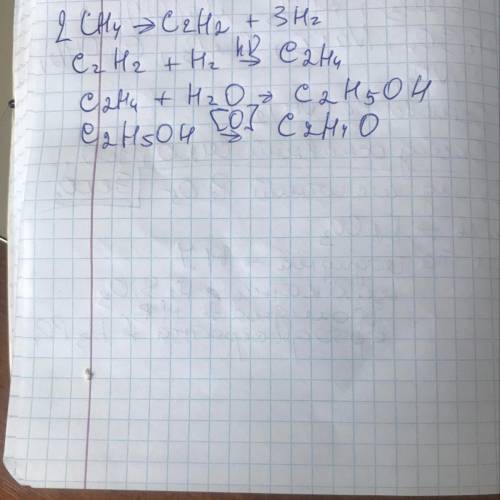 2 CH4 → C2H2 + 3H2
C2H2 + H2 → C2H4
C2H4 + H2O → C2H5OH
C2H5OH [O] → C2H4O